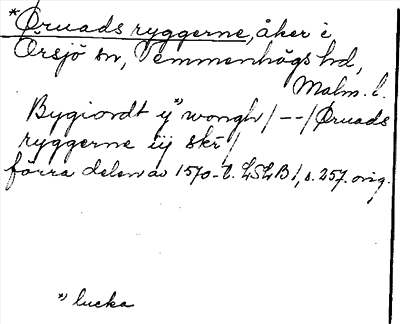 *Øruads ryggerne, åker i
Örsjö sn, Vemmenhögs hd,
Malm. l.
Bygiordt y*) wongh/ -- / Øruads
ryggerne iij skr /
förra delen av 1570-t. LSLB 1, s. 257. orig.
*) lucka